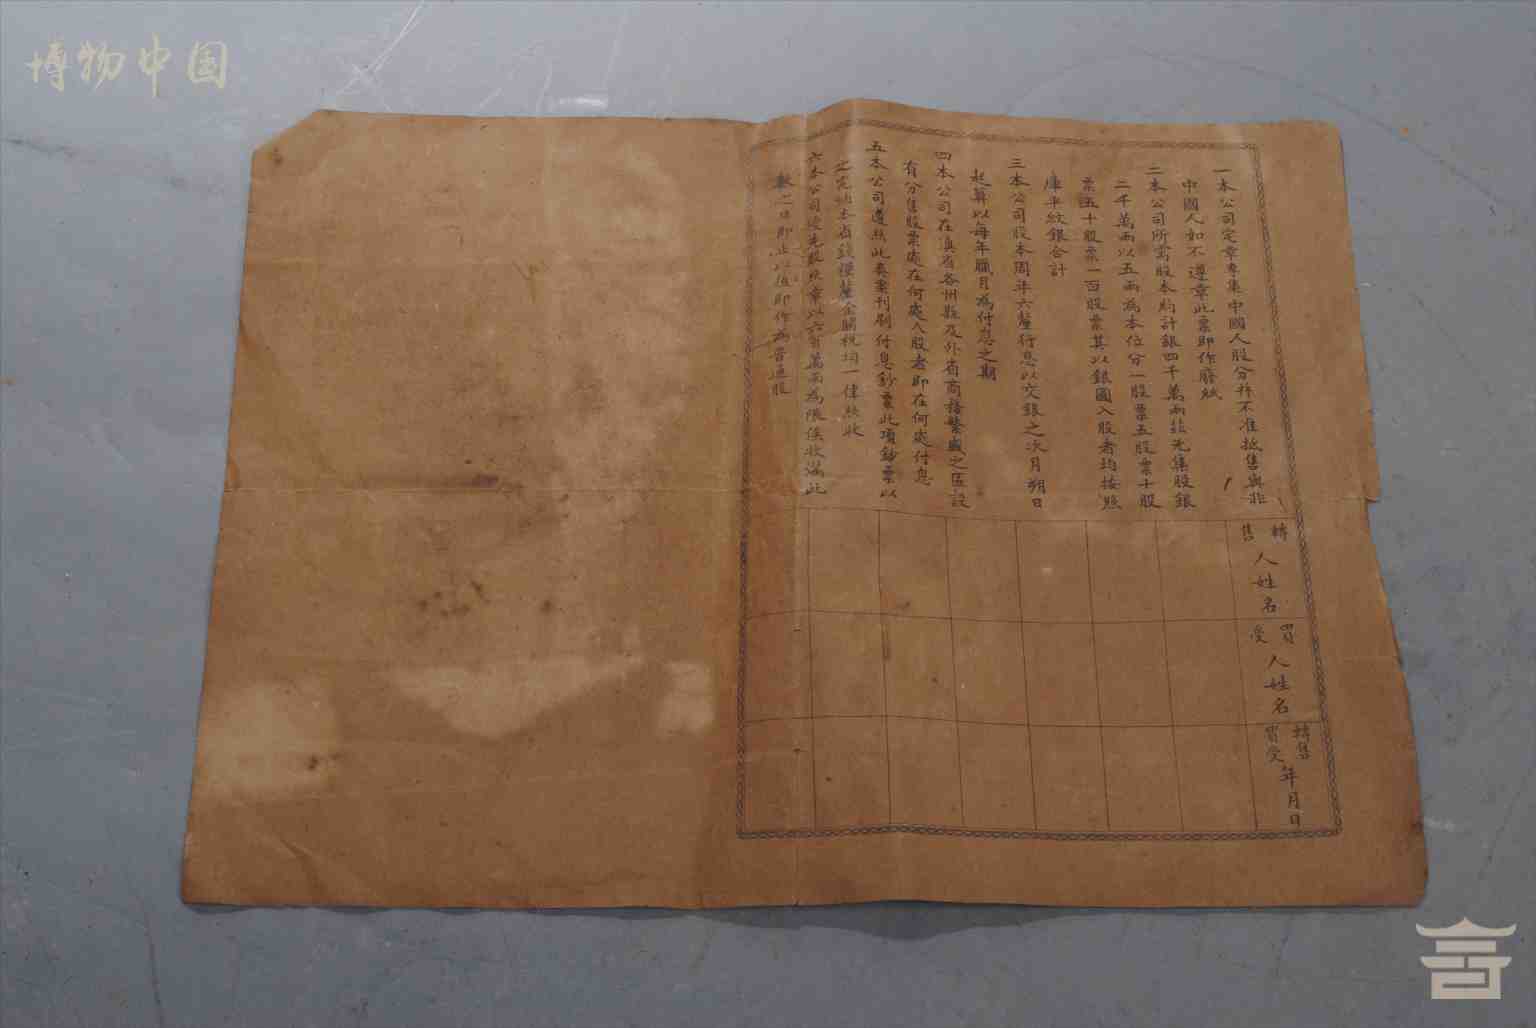 博物中国
一本公司定章專集中國人股分并不准抵售與非
中國人如不遵章此票即作廢紙
二本公司所需股本約計銀四千萬兩茲先集股銀
二千萬兩以五兩為本位分一股票五股票十股
票五十股票一百股票其以銀圓入股者均按照
庫平紋銀合計
三本公司股本周年六釐行息以交銀之次月朔日
起算以每年臘月為付息之期
四本公司在滇省各州縣及外省商務繁盛之區設
有分售股票處在何處入股者即在何處付息
五本公司遵照此類票刊刷付息鈔票此項鈔票以
之完納本省錢糧釐金關稅均一律照收
六本公司優先股定章以六百萬兩為限俟收滿此
數之日即止以後即作為普通股
轉售人姓名
買受人姓名
轉售買受年月日